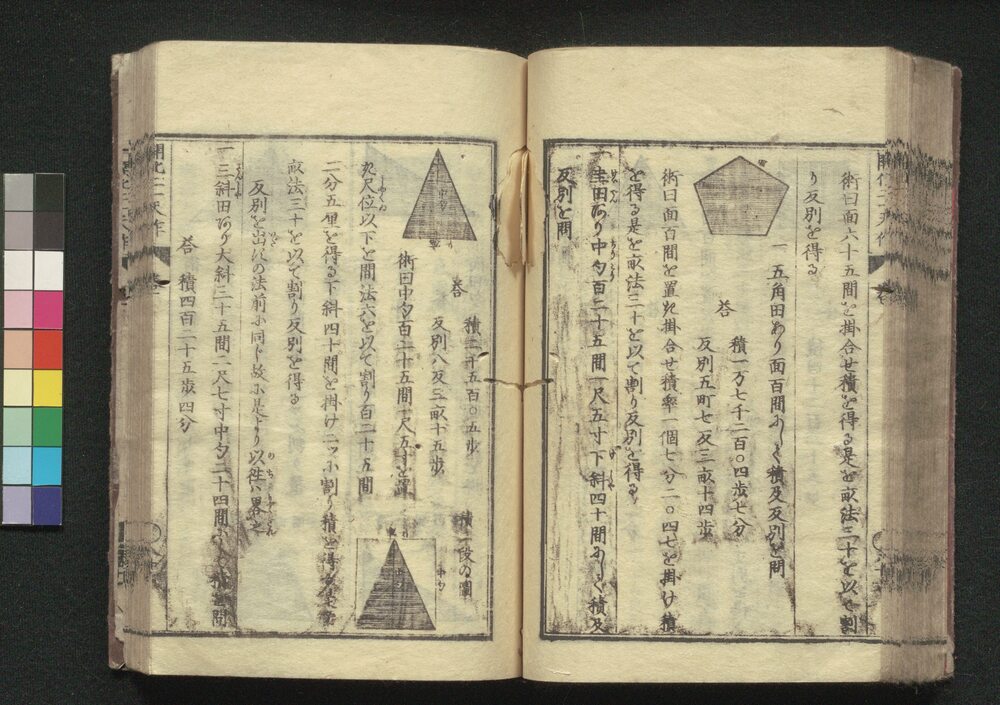 術曰面六十五間を掛合せ積を得る是を畝法三十を以て割
り反別を得る
一 五角田あり面百間にして積及反別を問
答 積一万七千二百〇四歩七分
反別五町七反三畝十四歩
術曰面百間を置き掛合せ積率一個七分二〇四七を掛け積
を得る是を畝法三十を以て割り反別を得る
一 圭田あり中勾百二十五間一尺五寸下斜四十間にして積及
反別を問
答 積二千五百〇五歩
反別八反三畝十五歩
術曰中勾百二十五間一尺五寸を置
き尺位以下を間法六を以て割り百二十五間
積一段の圖
中勾
二分五厘を得る下斜四十間を掛け二ッに割り積を得る
畝法三十を以て割り反別を得る
反別を出すの法前に同じ故に是より以往ハ畧之
一 三斜田あり大斜三十五間二尺七寸中勾二十四間にして積を問
答 積四百二十五歩四分